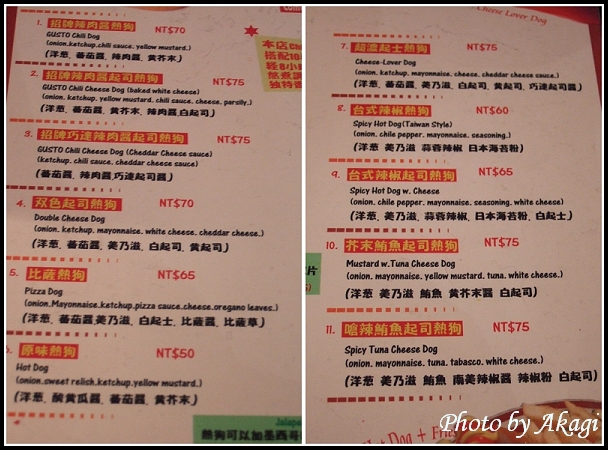 1. 招牌辣肉醬熱狗 NT$70
GUSTO Chili Dog
(onion.ketchup.chili sauce. yellow mustard.)
(洋葱. 蕃茄醬. 辣肉醬. 黃芥末)
2. 招牌辣肉醬起司熱狗 NT$75
GUSTO Chili Cheese Dog (baked white cheese)
(onion. ketchup. yellow mustard. chili sauce. cheese. parsily.)
(洋葱. 蕃茄醬. 黃芥末. 辣肉醬白起司)
3. 招牌巧達辣肉醬起司熱狗 NT$75
GUSTO Chili Cheese Dog (Cheddar Cheese sauce)
(ketchup. chili sauce. cheddar cheese sauce)
(蕃茄醬. 辣肉醬巧達起司醬)
4. 双色起司熱狗 NT$70
Double Cheese Dog
(onion. ketchup. mayonnaise. white cheese. cheddar cheese.)
(洋葱. 蕃茄醬. 美乃滋. 白起司. 黃起司)
5. 比薩熱狗 NT$65
Pizza Dog
(onion.Mayonnaise.ketchup.pizza sauce.cheese.oregano leaves.)
(洋葱. 蕃茄醬.美乃滋. 白起士. 比薩醬. 比薩草)
原味熱狗 NT$50
Hot Dog
(onion.sweet relish.ketchup.yellow mustard.)
(洋葱. 酸黃瓜醬. 蕃茄醬. 黃芥末)
本店
搭配10
獨特
熱狗可以加墨西哥
Cheese Lover Dog
7. 超濃起士熱狗 NT$75
Cheese-Lover Dog
(onion. ketchup. mayonnaise. cheese. cheddar cheese sauce.)
(洋葱. 蕃茄醬. 美乃滋. 白起司. 黃起司. 巧達起司醬)
8. 台式辣椒熱狗 NT$60
Spicy Hot Dog(Taiwan Style)
(onion. chile pepper. mayonnaise. seasoning.)
(洋葱 美乃滋 蒜蓉辣椒 日本海苔粉)
9. 台式辣椒起司熱狗 NT$65
Spicy Hot Dog w. Cheese
(onion. chile pepper. mayonnaise. seasoning. white cheese)
(洋葱. 美乃滋. 蒜蓉辣椒. 日本海苔粉. 白起士)
10. 芥末鮪魚起司熱狗 NT$75
Mustard w.Tuna Cheese Dog
(onion. mayonnaise. yellow mustard. tuna. white cheese.)
(洋葱 美乃滋 鮪魚 黃芥末醬 白起司)
片
11. 嗆辣鮪魚起司熱狗 NT$75
Spicy Tuna Cheese Dog
(onion. mayonnaise. tuna. tabasco. white cheese.)
(洋葱 美乃滋 鮪魚 南美辣椒醬 辣椒粉 白起司)
Hot Dog + Fries
Photo by Akagi